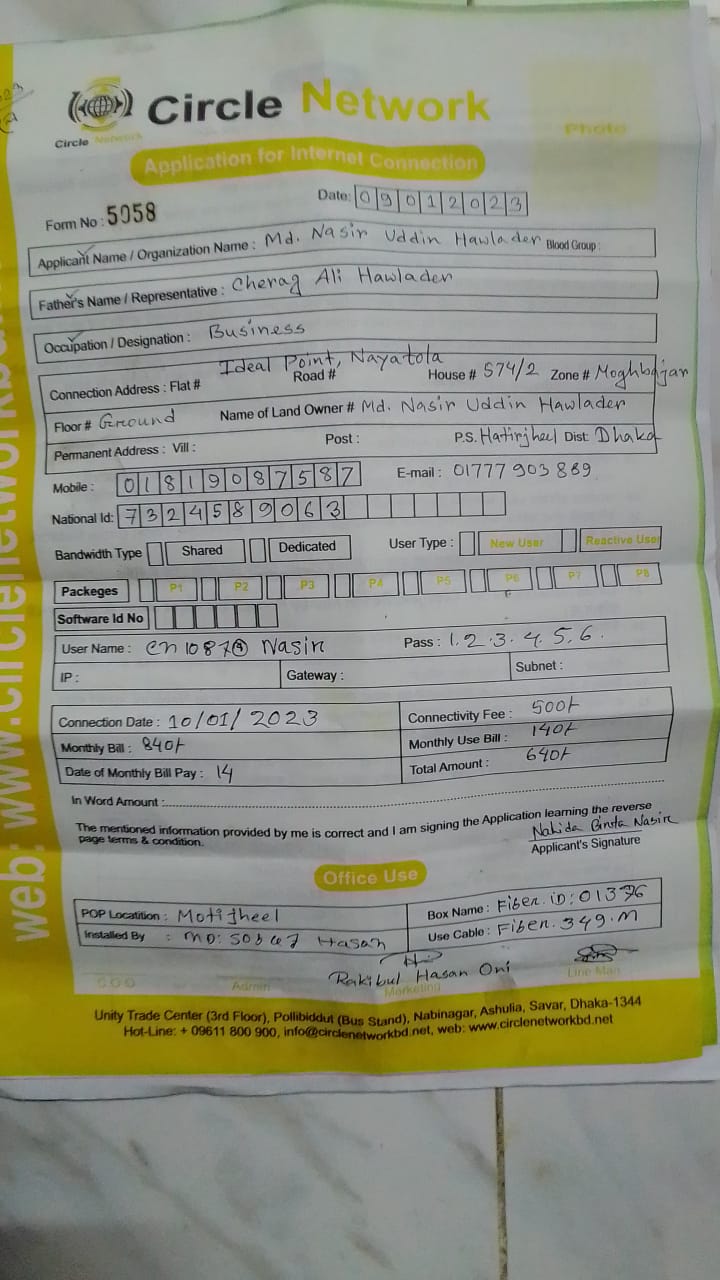 Circle Network
Circle Network
Photo
Application for Internet Connection
Date: 09012023
Form No : 5058
Applicant Name / Organization Name : Md. Nasir Uddin Hawlader Blood Group :
Father's Name / Representative : Cherag Ali Hawlader
Occupation / Designation : Business
Ideal Point, Nayatola
Connection Address : Flat # Road # House # 574/2 Zone # Moghbajar
Floor # Ground Name of Land Owner # Md. Nasir Uddin Hawlader
Permanent Address : Vill : Post : P.S. Hatirjheel Dist: Dhaka
Mobile : 01819087587 E-mail : 01777 903 889
National Id: 7324589063
Bandwidth Type Shared Dedicated User Type : New User Reactive User
Packeges P1 P2 P3 P4 P5 P6 P7 P8
Software Id No
User Name : Nasir Pass : 1.2.3.4.5.6.
IP : Gateway : Subnet :
Connection Date : 10/01/2023 Connectivity Fee : 500/-
Monthly Bill : 840/- Monthly Use Bill : 140/-
Date of Monthly Bill Pay : 14 Total Amount : 640/-
In Word Amount :
The mentioned information provided by me is correct and I am signing the Application learning the reverse
page terms & condition.
Nahida Binta Nasir
Applicant's Signature
Office Use
POP Locatition : Motijheel Box Name : Fiber. iD: 01376
Installed By : MD: Hasan Use Cable : Fiber. 349.M
Rakibul Hasan Oni
Admin Marketing Line Man
Unity Trade Center (3rd Floor), Pollibiddut (Bus Stand), Nabinagar, Ashulia, Savar, Dhaka-1344
Hot-Line: + 09611 800 900, info@circlenetworkbd.net, web: www.circlenetworkbd.net